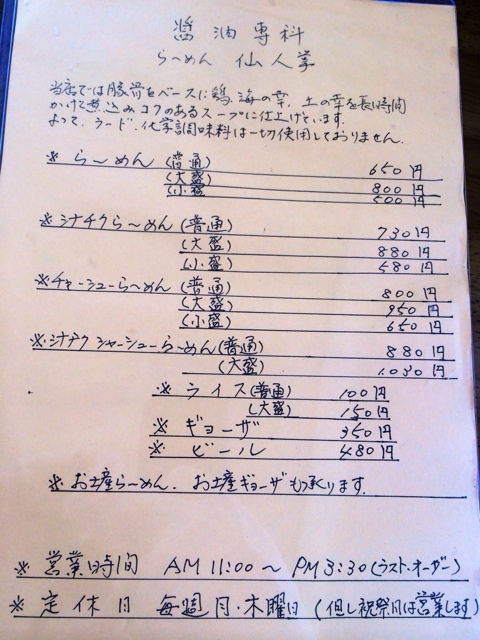 醤油専科
らーめん 仙人掌
当店では豚骨をベースに鶏、海の幸、土の幸を長時間
かけて煮込みコクのあるスープに仕上げています。
よって、ラード、化学調味料は一切使用しておりません。
※ らーめん (普通) 650円
(大盛) 800円
(小盛) 500円
※シナチクらーめん (普通) 730円
(大盛) 880円
(小盛) 580円
※チャーシューらーめん (普通) 800円
(大盛) 950円
(小盛) 650円
※シナチクシャーシューらーめん(普通) 880円
(大盛) 1.030円
※ ライス(普通) 100円
(大盛) 150円
※ ギョーザ 350円
※ ビール 480円
※お土産らーめん、お土産ギョーザも承ります。
※ 営業時間 AM 11:00 〜 PM 3:30 (ラスト・オーダー)
※ 定休日 毎週月・木曜日 (但し祝祭日は営業します)